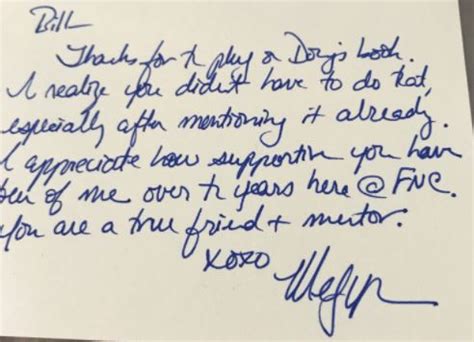 Bill
Thanks for th plug on Doug's book.
I realize you didn't have to do that,
especially after mentioning it already.
I appreciate how supportive you have
been of me over th years here @ FNC.
You are a true friend + mentor.
XOXO
Megyn